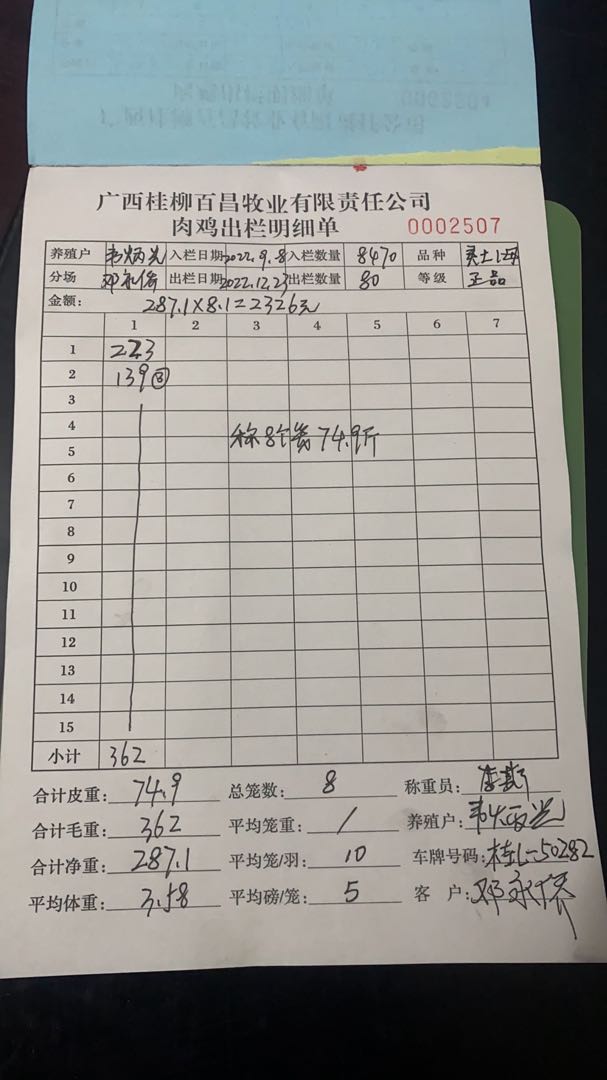 广西桂柳百昌牧业有限责任公司
肉鸡出栏明细单 0002507
养殖户 韦炳光 入栏日期 2022.9.8 入栏数量 8470 品种 土
分场 出栏日期 2022.12.23 出栏数量 80 等级 正品
金额: 287.1×8.1=2326元
1 2 3 4 5 6 7
1 223
2 139③
3
4 称8个笼74.9斤
5
6
7
8
9
10
11
12
13
14
15
小计 362
合计皮重: 74.9 总笼数: 8 称重员:
合计毛重: 362 平均笼重: / 养殖户: 韦炳光
合计净重: 287.1 平均笼/羽: 10 车牌号码: 桂L-50282
平均体重: 3.58 平均磅/笼: 5 客户: 邓永